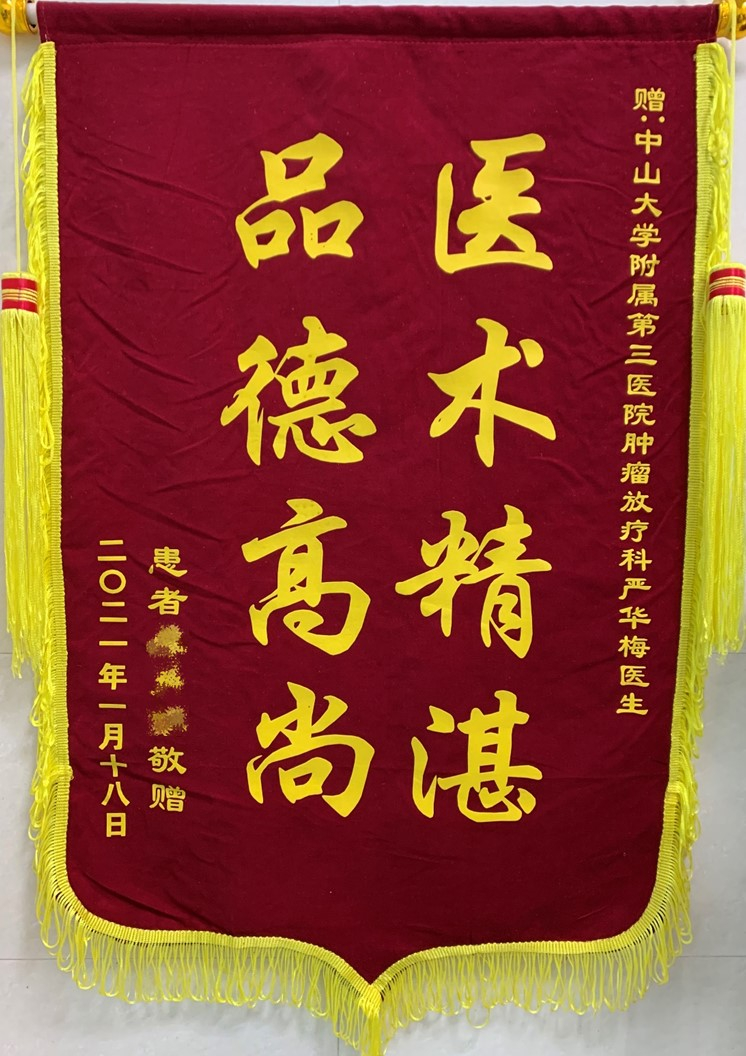 赠:中山大学附属第三医院肿瘤放疗科严华梅医生
医术精湛
品德高尚
患者 敬赠
二〇二一年一月十八日